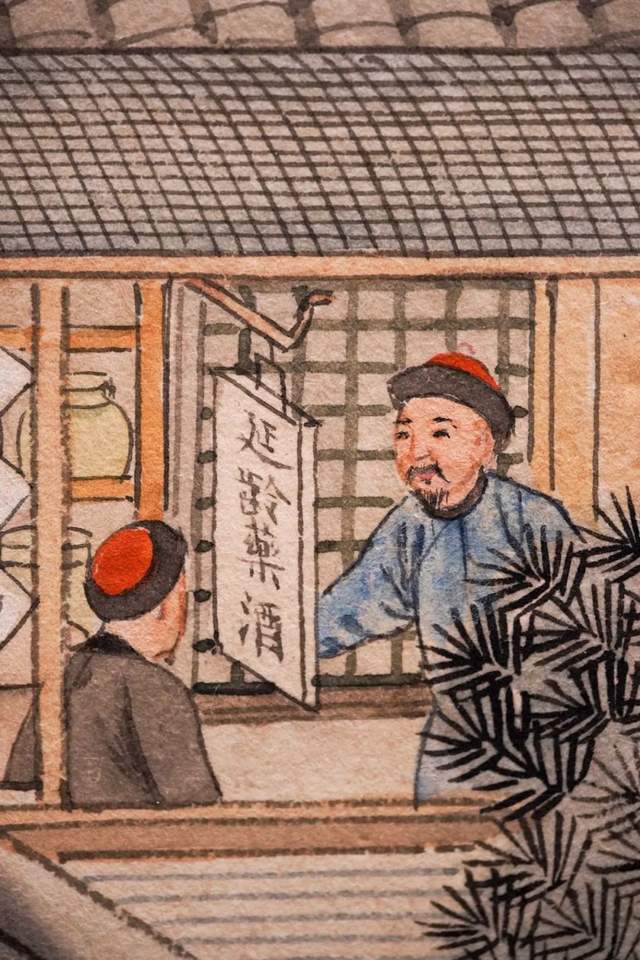 延齡藥酒